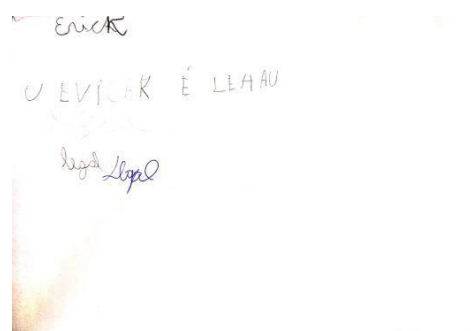 Erick
U EVICAK É LEAAU
legal Legal